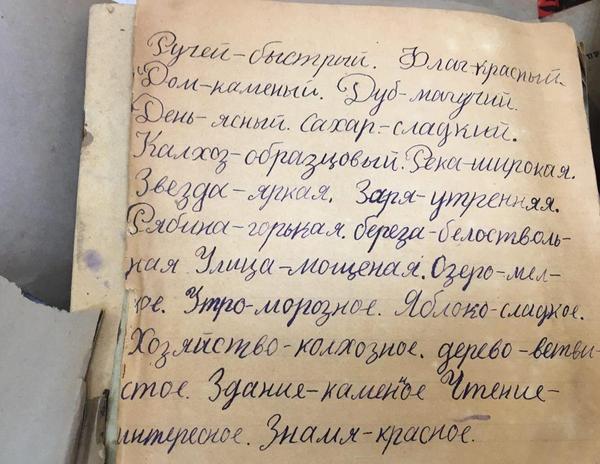 Ручей-быстрый. Флаг-красный.
Дом-каменый. Дуб-магучий.
День-ясный. Сахар-сладкий.
Калхоз-образцовый. Река-широкая.
Звезда-яркая. Заря-утренняя.
Рябина-горькая. береза-белостволь-
ная Улица-мощеная. Озеро-мел-
кое. Утро-морозное. Яблоко-сладкое.
Хозяйство-колхозное. дерево-ветви-
стое. Здание-каменное Чтение-
интересное. Знамя-красное.